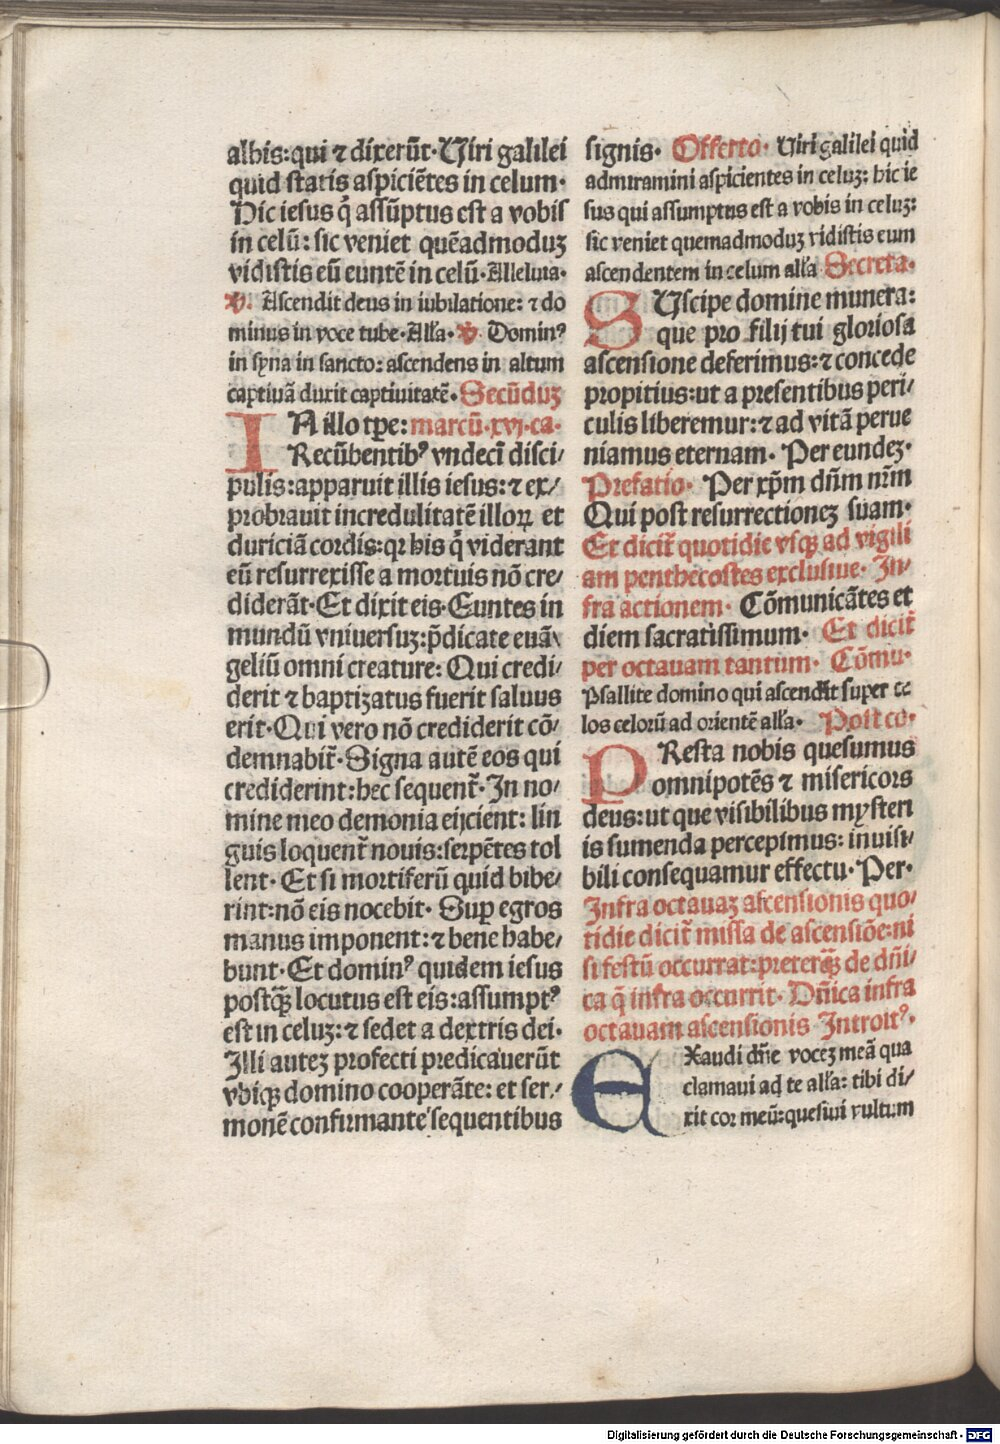 albis:qui ⁊ dixerūt·Uiri galilei
quid statis aspiciētes in celum·
Hic iesus q̇ assūptus est a vobis
in celū: sic veniet quēadmoduꝫ
vidistis eū euntē in celū·Alleluia·
V. Ascendit deus in iubilatione: ⁊ do
minus in voce tube·Alľa· V. Domin⁹
in syna in sancto: ascendens in altum
captiuā duxit captiuitatē·Secūduꝫ
IN illo tꝑe: marcū·xvj·ca·
Recūbentib⁹ vndecī disci⸗
pulis:apparuit illis iesus: ⁊ ex⸗
probrauit incredulitatē illoꝝ et
duriciā cordis:qꝛ his q̇ viderant
eū resurrexisse a mortuis nō cre⸗
diderāt·Et dixit eis·Euntes in
mundū vniuersuꝫ:p̄dicate euā⸗
geliū omni creature: Qui credi⸗
derit ⁊ baptizatus fuerit saluus
erit·Qui vero nō crediderit cō⸗
demnabit̄·Signa autē eos qui
crediderint:hec sequent̄·In no⸗
mine meo demonia eijcient: lin
guis loquent̄ nouis:serpētes tol
lent· Et si mortiferū quid bibe⸗
rint:nō eis nocebit· Suꝑ egros
manus imponent: ⁊ bene habe⸗
bunt·Et domin⁹ quidem iesus
postꝙ̄ locutus est eis:assumpt⁹
est in celuꝫ: ⁊ sedet a dextris dei·
Illi autez profecti predicauerūt
vbiqꝫ domino cooperāte: et ser⸗
monē confirmante sequentibus
signis· Offerto· Uiri galilei quid
admiramini aspicientes in celuꝫ: hic ie
sus qui assumptus est a vobis in celuꝫ:
sic veniet quemadmoduꝫ vidistis eum
ascendentem in celum alľa Secreta·
SUscipe domine munera:
que pro filij tui gloriosa
ascensione deferimus: ⁊ concede
propitius:ut a presentibus peri⸗
culis liberemur: ⁊ ad vitā perue
niamus eternam· Per eundeꝫ·
Prefatio· Per xp̄m dn̄m nr̄m
Qui post resurrectioneꝫ suam·
Et dicit̄ quotidie vsqꝫ ad vigili
am penthecostes exclusiue· In⸗
fra actionem· Cōmunicātes et
diem sacratissimum· Et dicit̄
per octauam tantum· Cōmu·
Psallite domino qui ascendit super ce
los celorū ad orientē alľa· Post co·
PResta nobis quesumus
omnipotēs ⁊ misericors
deus: ut que visibilibus mysteri
is sumenda percepimus: inuisi⸗
bili consequamur effectu·Per·
Infra octauaꝫ ascensionis quo⸗
tidie dicit̄ missa de ascensiōe:ni
si festū occurrat:pretereꝙ̄ de dn̄i⸗
ca q̄ infra occurrit· Dn̄ica infra
octauam ascensionis Introit⁹·
EXaudi dn̄e voceꝫ meā qua
clamaui ad te alľa: tibi di⸗
xit cor meū:quesiui vultum
Digitalisierung gefördert durch die Deutsche Forschungsgemeinschaft - DFG